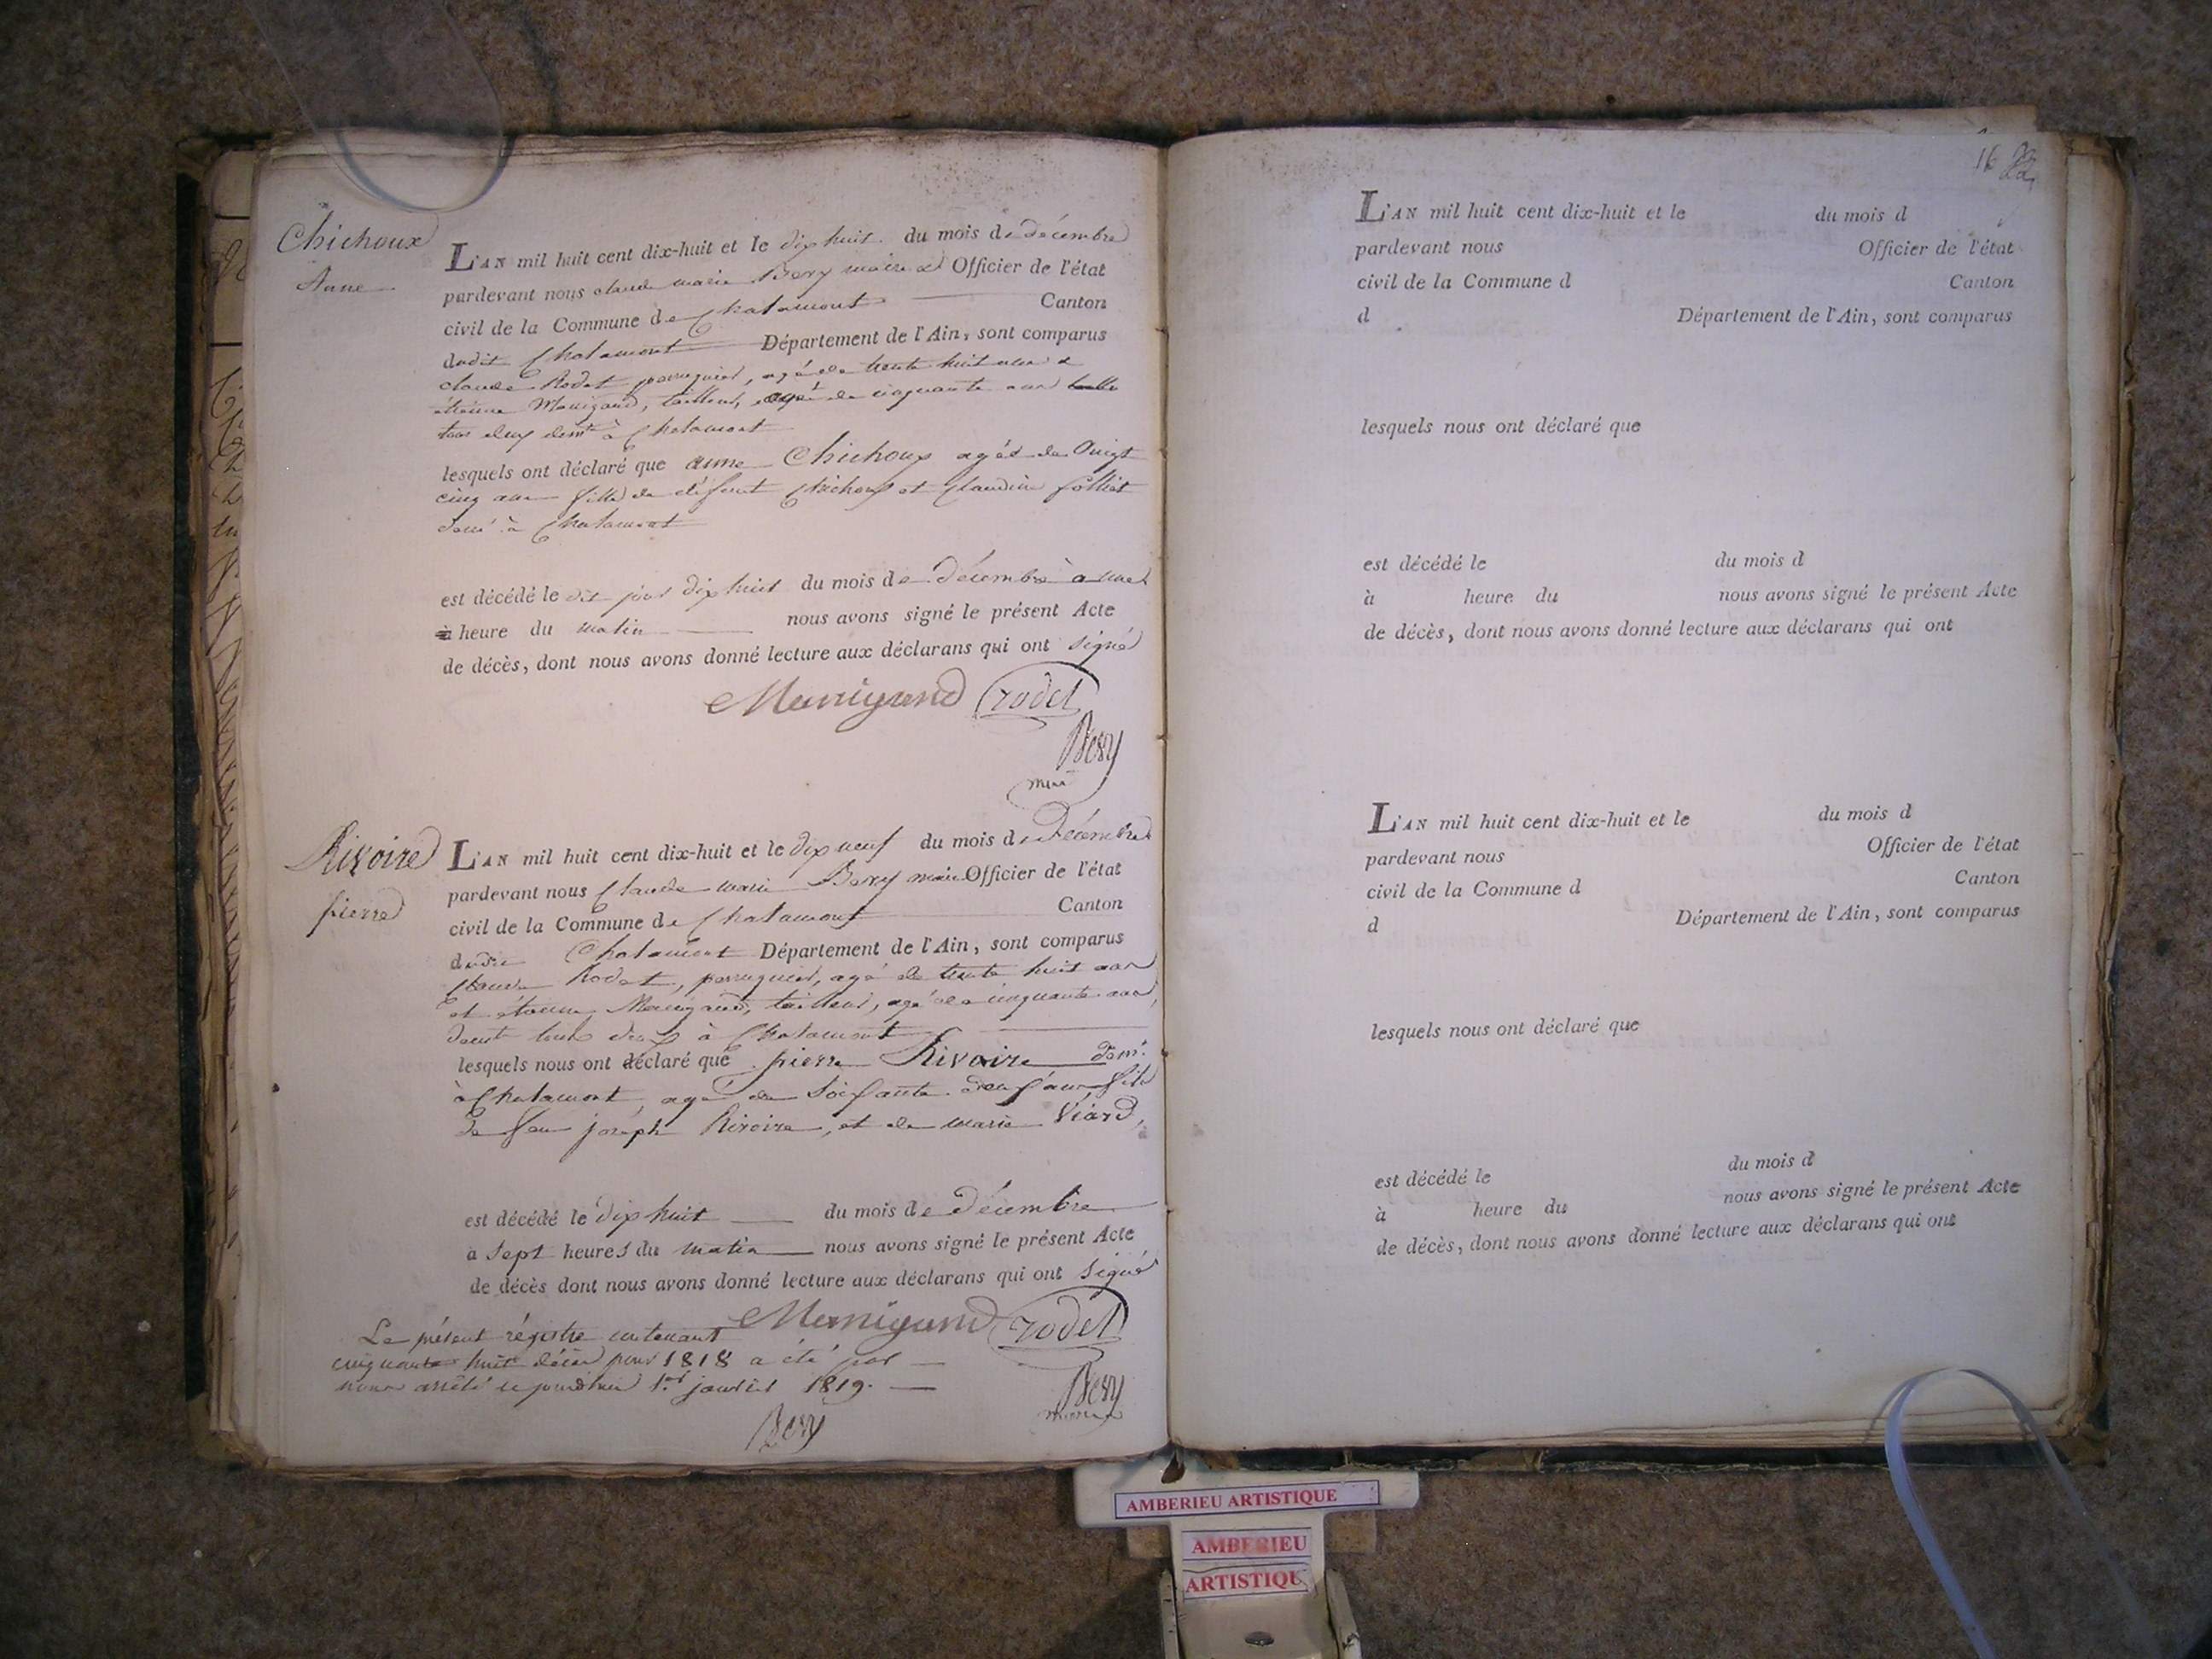 Chichoux
Anne
L'AN mil huit cent dix-huit et le dix huit du mois de décembre
pardevant nous claude marie Bery maire et Officier de l'état
civil de la Commune de Chalamont Canton
dudit Chalamont Département de l'Ain, sont comparus
claude Rodet perruquier, agé de trente huit ans &
étienne Manigand, tailleur, agé de cinquante ans
tous deux demt à Chalamont
lesquels ont déclaré que anne Chichoux agée de vingt
cinq ans fille de défunt Chichoux et Claudine folliet
demt à Chalamont
est décédé le dit jour dix huit du mois de Décembre à une
heure du matin nous avons signé le présent Acte
de décès, dont nous avons donné lecture aux déclarans qui ont signé
Manigand rodet
Bery
maire
Rivoire
pierre
L'AN mil huit cent dix-huit et le dix neuf du mois de Décembre
pardevant nous Claude marie Bery maire Officier de l'état
civil de la Commune de Chalamont Canton
dudit Chalamont Département de l'Ain, sont comparus
Claude Rodet, perruquier, agé de trente huit ans
et étienne Manigand, tailleur, agé de cinquante ans,
demt tous deux à Chalamont
lesquels nous ont déclaré que pierre Rivoire demt
à Chalamont, agé de soixante deux ans fils
de feu joseph Rivoire, et de marie Viard,
est décédé le dix huit du mois de Décembre
à sept heures du matin nous avons signé le présent Acte
de décès dont nous avons donné lecture aux déclarans qui ont signé
Manigand rodet
Le présent régistre contenant
cinquante huit décès pour 1818 a été par
nous arrêté ce jourdhui 1er janvier 1819.
Bery
maire
Bery
16
L'AN mil huit cent dix-huit et le du mois d
pardevant nous Officier de l'état
civil de la Commune d Canton
d Département de l'Ain, sont comparus
lesquels nous ont déclaré que
est décédé le du mois d
à heure du nous avons signé le présent Acte
de décès, dont nous avons donné lecture aux déclarans qui ont
L'AN mil huit cent dix-huit et le du mois d
pardevant nous Officier de l'état
civil de la Commune d Canton
d Département de l'Ain, sont comparus
lesquels nous ont déclaré que
est décédé le du mois d
à heure du nous avons signé le présent Acte
de décès, dont nous avons donné lecture aux déclarans qui ont
AMBERIEU ARTISTIQUE
AMBERIEU
ARTISTIQUE